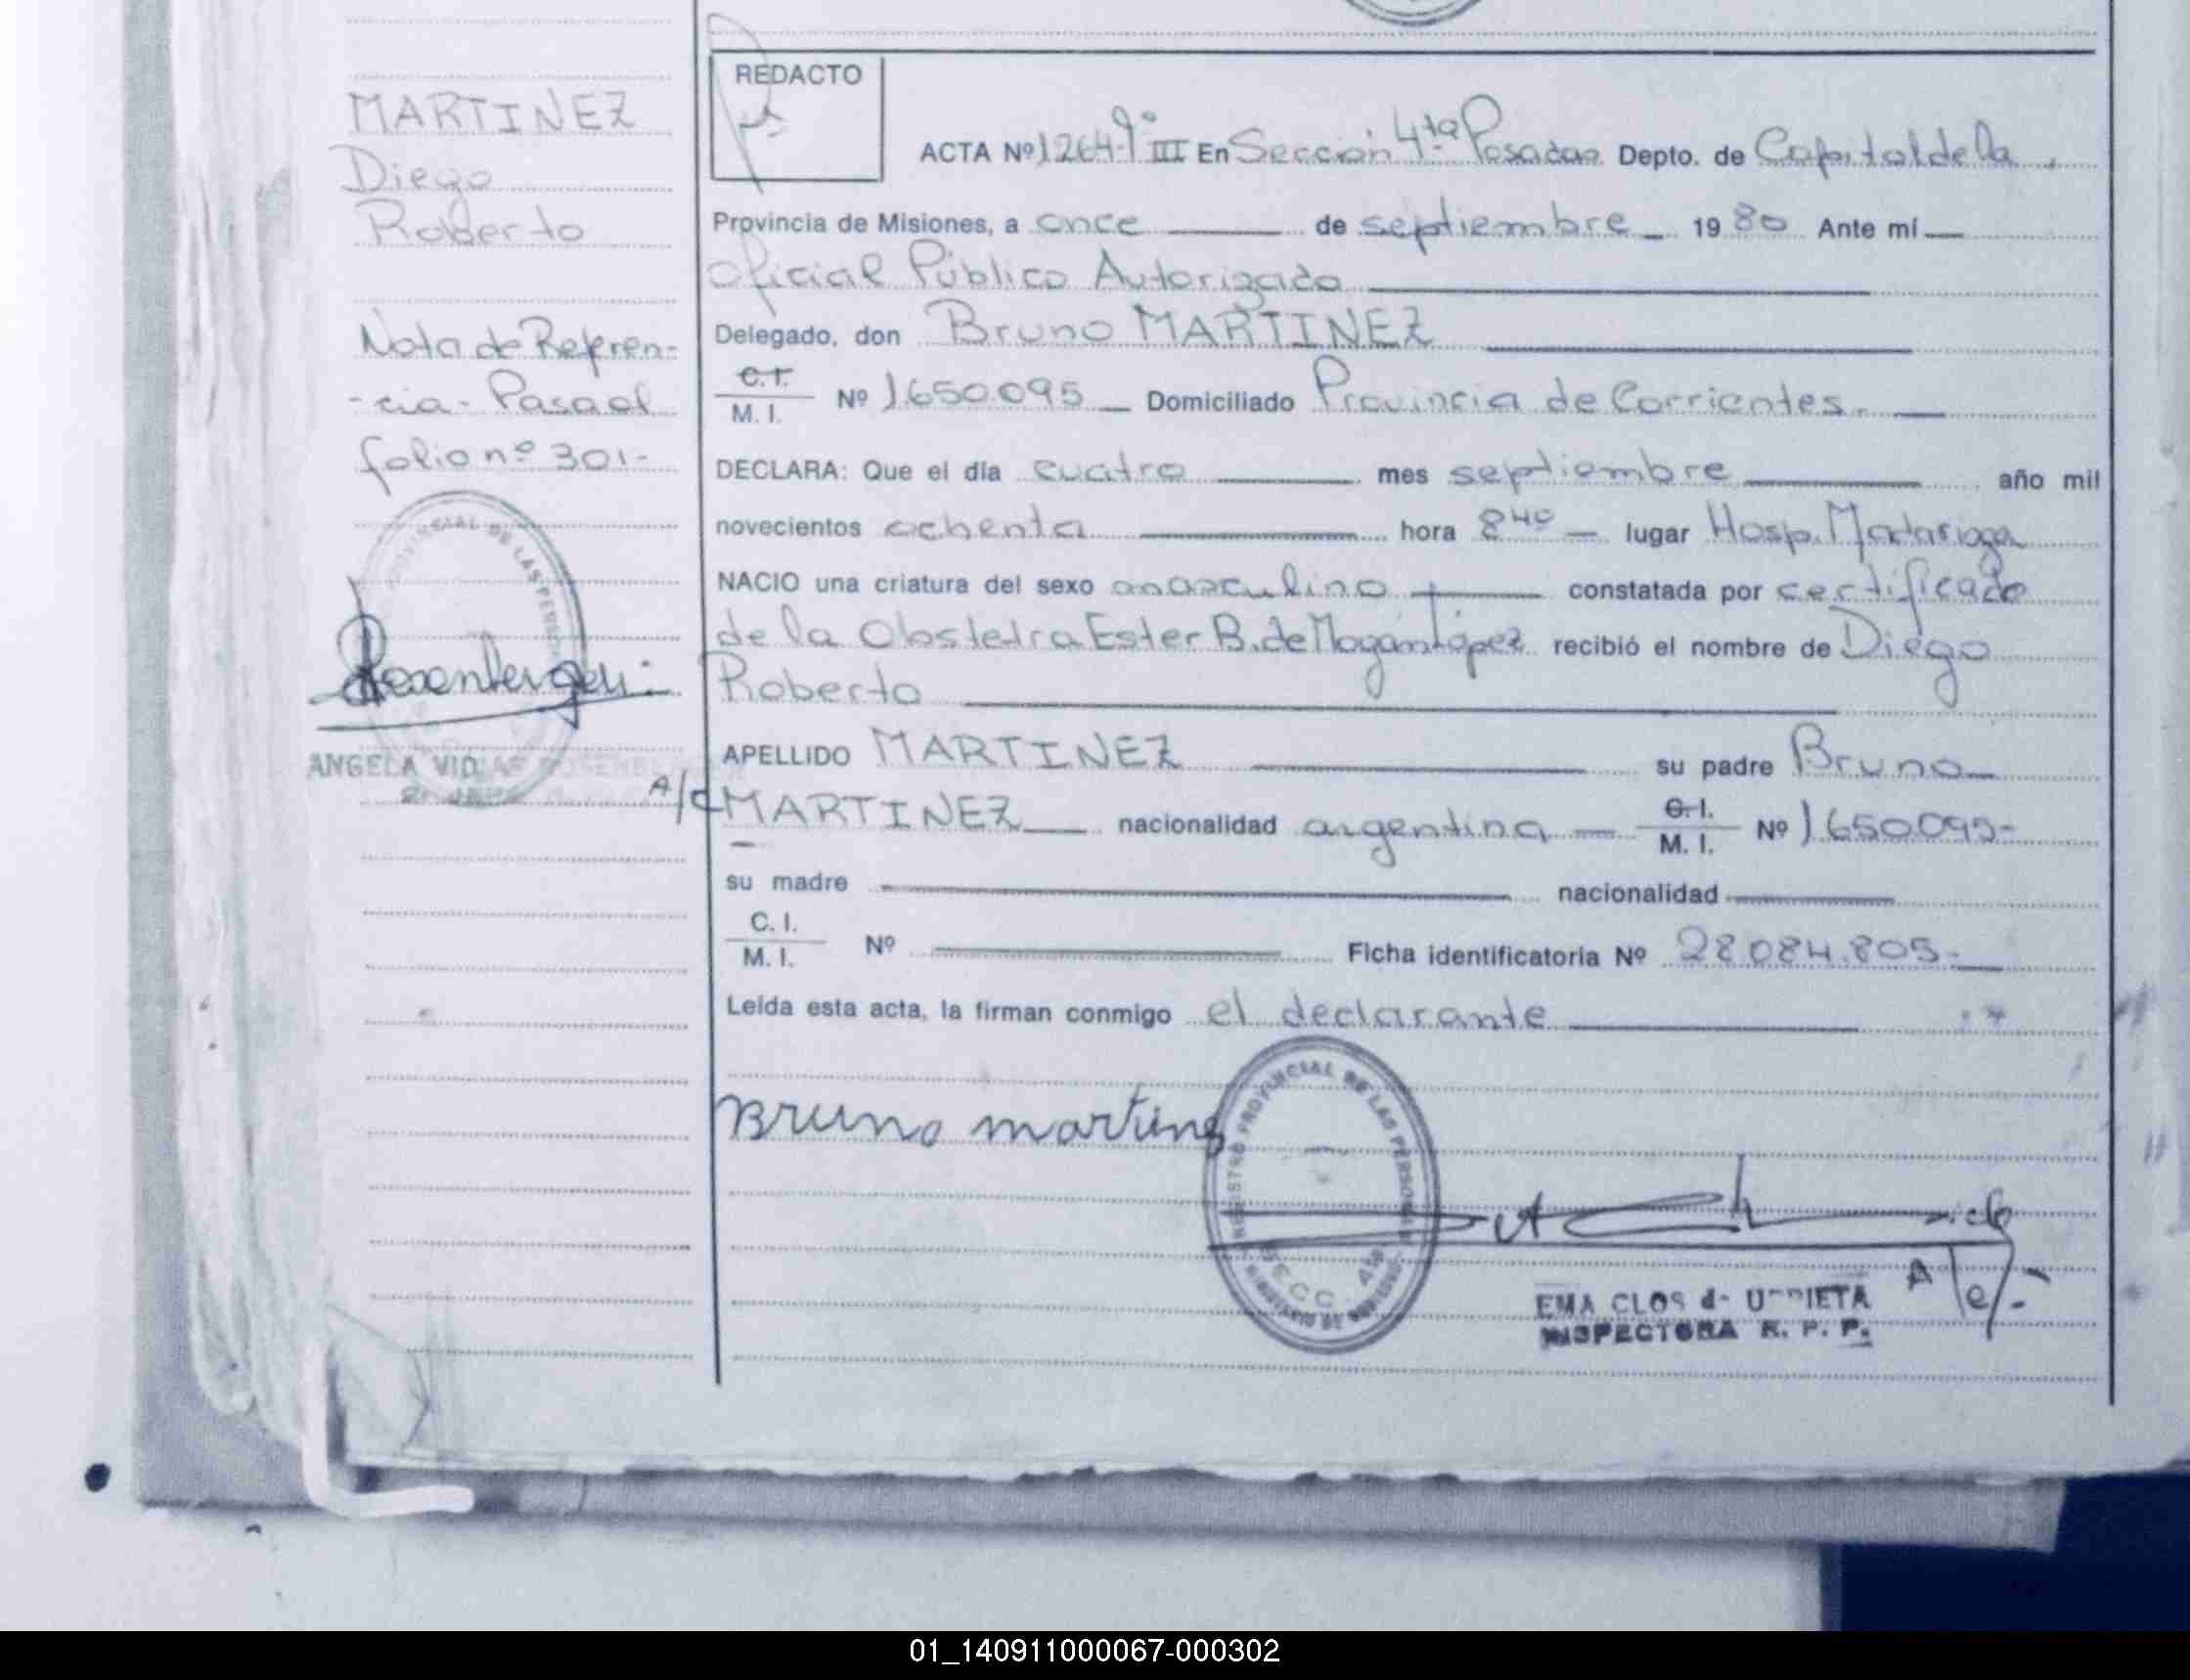 MARTINEZ
Diego
Roberto
Nota de Referen-
-cia- Pasa al
folio nº 301.-
PROVINCIAL DE LAS PERSON
Rosenberger.-
ANGELA VID
A/C
REDACTO
ACTA Nº 1264 Tº III En Sección 4ta Posadas Depto. de Capital de la
Provincia de Misiones, a once de septiembre 1980 Ante mí
Oficial Público Autorizado
Delegado, don Bruno MARTINEZ
C.I.
M. I. Nº 1.650.095 Domiciliado Provincia de Corrientes.
DECLARA: Que el día cuatro mes septiembre año mil
novecientos ochenta hora 8 40 lugar Hosp. Madariaga
NACIO una criatura del sexo masculino constatada por certificado
de la Obstetra Ester B. de López recibió el nombre de Diego
Roberto
APELLIDO MARTINEZ su padre Bruno
MARTINEZ nacionalidad argentina C.I.
M. I. Nº 1.650.095-
su madre nacionalidad
C. I.
M. I. Nº Ficha identificatoria Nº 28.084.805-
Leída esta acta, la firman conmigo el declarante
Bruno martinez
REGISTRO PROVINCIAL DE LAS PERSONAS
SECC. 4ta
EMA CLOS de URRIETA
INSPECTORA R. P. P.
A/C/-
01_140911000067-000302